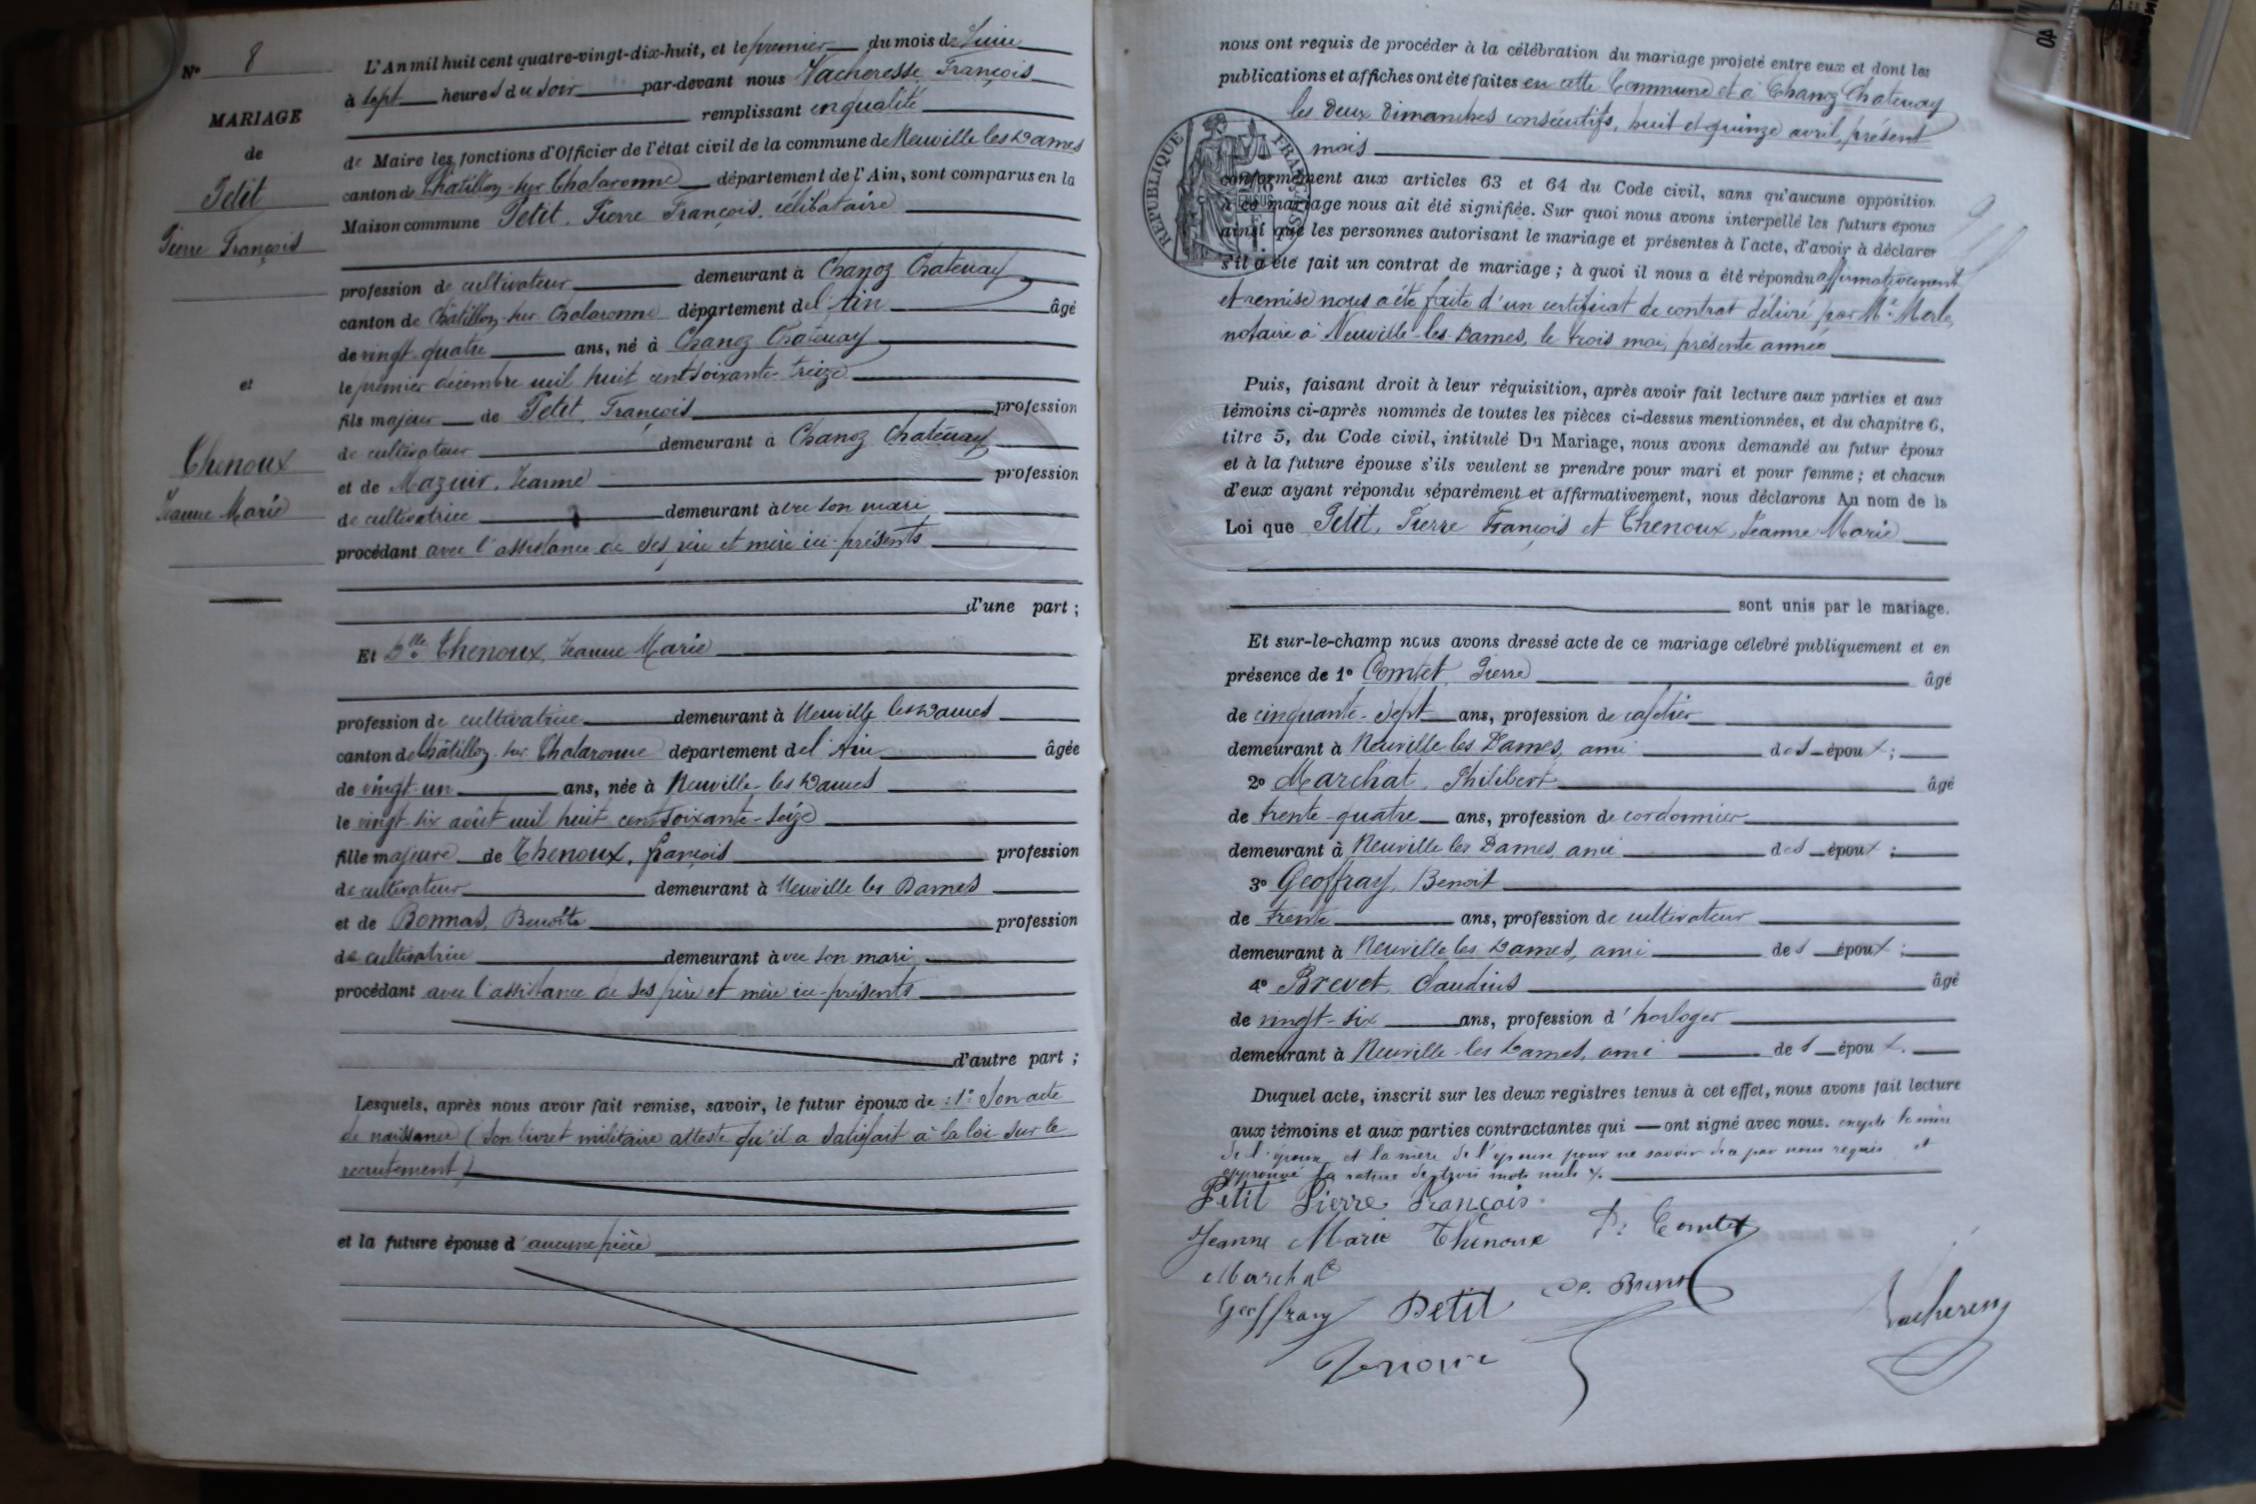 No 8
MARIAGE
de
Petit
Pierre François
et
Thenoux
Jeanne Marie
L'An mil huit cent quatre-vingt-dix-huit, et le premier du mois de Juin
à sept heures du soir par-devant nous Vacheresse, François
remplissant en qualité
de Maire les fonctions d'Officier de l'état civil de la commune de Neuville les Dames
canton de Châtillon-sur-Chalaronne département de l'Ain, sont comparus en la
Maison commune Petit, Pierre François, célibataire
profession de cultivateur demeurant à Chanoz Chatenay
canton de Châtillon-sur-Chalaronne département de l'Ain âgé
de vingt-quatre ans, né à Chanoz Chatenay
le premier décembre mil huit cent soixante-treize
fils majeur de Petit, François profession
de cultivateur demeurant à Chanoz Chatenay
et de Mazuir, Jeanne profession
de cultivatrice demeurant avec son mari
procédant avec l'assistance de ses père et mère ici-présents
d'une part ;
Et Dlle Thenoux, Jeanne Marie
profession de cultivatrice demeurant à Neuville les Dames
canton de Châtillon-sur-Chalaronne département de l'Ain âgée
de vingt-un ans, née à Neuville-les-Dames
le vingt-six août mil huit cent soixante-seize
fille majeure de Thenoux, françois profession
de cultivateur demeurant à Neuville les Dames
et de Bonnas, Benoîte profession
de cultivatrice demeurant avec son mari
procédant avec l'assistance de ses père et mère ici-présents
d'autre part ;
Lesquels, après nous avoir fait remise, savoir, le futur époux de : 1° Son acte
de naissance (son livret militaire atteste qu'il a satisfait à la loi sur le
recrutement)
et la future épouse d'aucune pièce
nous ont requis de procéder à la célébration du mariage projeté entre eux et dont les
publications et affiches ont été faites en cette Commune et à Chanoz Chatenay
les deux dimanches consécutifs, huit et quinze avril, présent
mois
RÉPUBLIQUE FRANÇAISE
conformément aux articles 63 et 64 du Code civil, sans qu'aucune opposition
à ce mariage nous ait été signifiée. Sur quoi nous avons interpellé les futurs époux
ainsi que les personnes autorisant le mariage et présentes à l'acte, d'avoir à déclarer
s'il a été fait un contrat de mariage ; à quoi il nous a été répondu affirmativement
et remise nous a été faite d'un certificat de contrat délivré par Me Merle,
notaire à Neuville-les-Dames, le trois mai, présente année
Puis, faisant droit à leur réquisition, après avoir fait lecture aux parties et aux
témoins ci-après nommés de toutes les pièces ci-dessus mentionnées, et du chapitre 6,
titre 5, du Code civil, intitulé Du Mariage, nous avons demandé au futur époux
et à la future épouse s'ils veulent se prendre pour mari et pour femme ; et chacun
d'eux ayant répondu séparément et affirmativement, nous déclarons Au nom de la
Loi que Petit, Pierre François et Thenoux, Jeanne Marie
sont unis par le mariage.
Et sur-le-champ nous avons dressé acte de ce mariage célébré publiquement et en
présence de 1° Comtet, Pierre âgé
de cinquante-sept ans, profession de cafetier
demeurant à Neuville les Dames, ami des époux ;
2° Marchat, Philibert âgé
de trente-quatre ans, profession de cordonnier
demeurant à Neuville les Dames, ami des époux ;
3° Geoffray, Benoit
de trente ans, profession de cultivateur
demeurant à Neuville les Dames, ami des époux ;
4° Brevet, Claudius âgé
de vingt-six ans, profession d'horloger
demeurant à Neuville-les-Dames, ami des époux.
Duquel acte, inscrit sur les deux registres tenus à cet effet, nous avons fait lecture
aux témoins et aux parties contractantes qui ont signé avec nous. excepté la mère
de l'époux et la mère de l'épouse pour ne savoir de ce par nous requis et
approuvé la rature de trois mots nuls
Petit Pierre François
Jeanne Marie Thenoux P. Comtet
Marchat
Geoffray Petit Cl. Brevet
Tenoux
Vacheresse